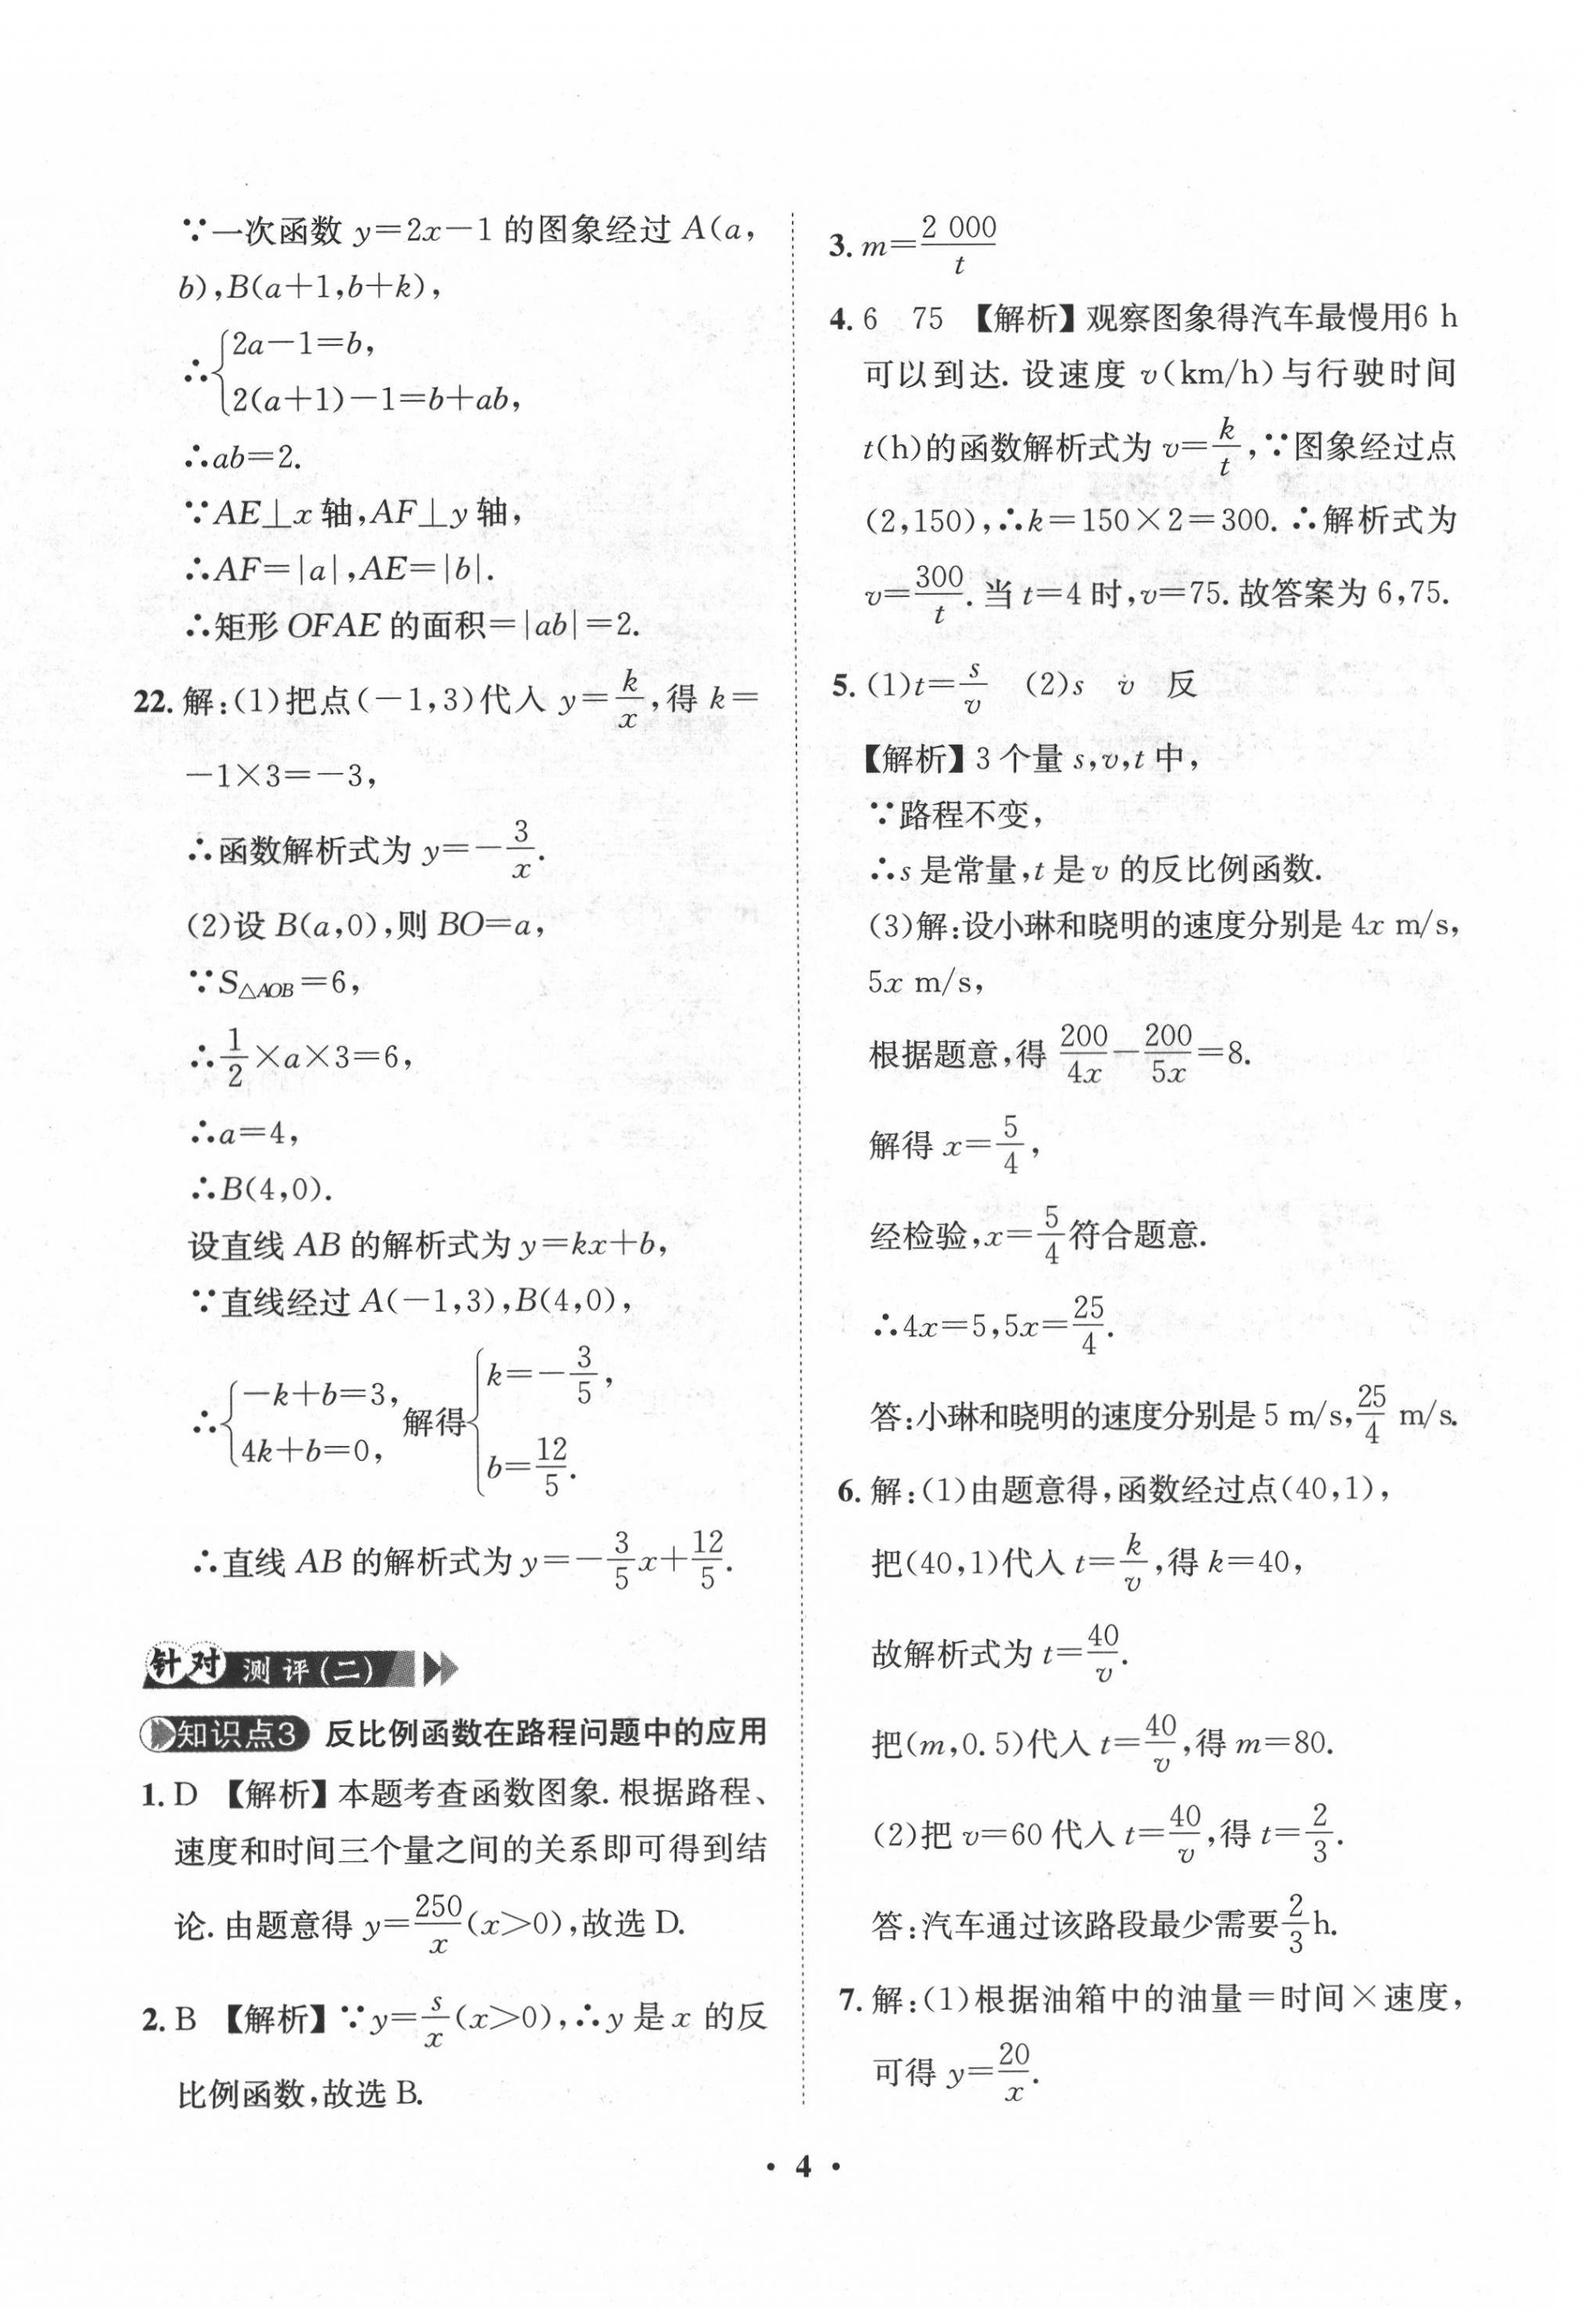 ∵一次函数 y=2x−1 的图象经过 A(a,
b),B(a+1,b+k),
∴{2a−1=b,
2(a+1)−1=b+ab,
∴ab=2.
∵AE⊥x 轴,AF⊥y 轴,
∴AF=|a|,AE=|b|.
∴矩形 OFAE 的面积=|ab|=2.
22. 解:(1)把点(−1,3)代入 y=k/x,得 k=
−1×3=−3,
∴函数解析式为 y=−3/x.
(2)设 B(a,0),则 BO=a,
∵S△AOB=6,
∴1/2×a×3=6,
∴a=4,
∴B(4,0).
设直线 AB 的解析式为 y=kx+b,
∵直线经过 A(−1,3),B(4,0),
∴{−k+b=3, 4k+b=0, 解得{k=−3/5, b=12/5.
∴直线 AB 的解析式为 y=−3/5x+12/5.
针对测评(二)
知识点3 反比例函数在路程问题中的应用
1. D 【解析】本题考查函数图象. 根据路程、
速度和时间三个量之间的关系即可得到结
论. 由题意得 y=250/x(x>0),故选 D.
2. B 【解析】∵y=s/x(x>0),∴y 是 x 的反
比例函数,故选 B.
3. m=2 000/t
4. 6 75 【解析】观察图象得汽车最慢用6 h
可以到达. 设速度 v(km/h)与行驶时间
t(h)的函数解析式为 v=k/t,∵图象经过点
(2,150),∴k=150×2=300. ∴解析式为
v=300/t. 当 t=4 时,v=75. 故答案为 6,75.
5. (1)t=s/v (2)s v 反
【解析】3 个量 s,v,t 中,
∵路程不变,
∴s 是常量,t 是 v 的反比例函数.
(3)解:设小琳和晓明的速度分别是 4x m/s,
5x m/s,
根据题意,得 200/4x−200/5x=8.
解得 x=5/4,
经检验,x=5/4符合题意.
∴4x=5,5x=25/4.
答:小琳和晓明的速度分别是 5 m/s,25/4 m/s.
6. 解:(1)由题意得,函数经过点(40,1),
把(40,1)代入 t=k/v,得 k=40,
故解析式为 t=40/v.
把(m,0.5)代入 t=40/v,得 m=80.
(2)把 v=60 代入 t=40/v,得 t=2/3.
答:汽车通过该路段最少需要2/3h.
7. 解:(1)根据油箱中的油量=时间×速度,
可得 y=20/x.
· 4 ·